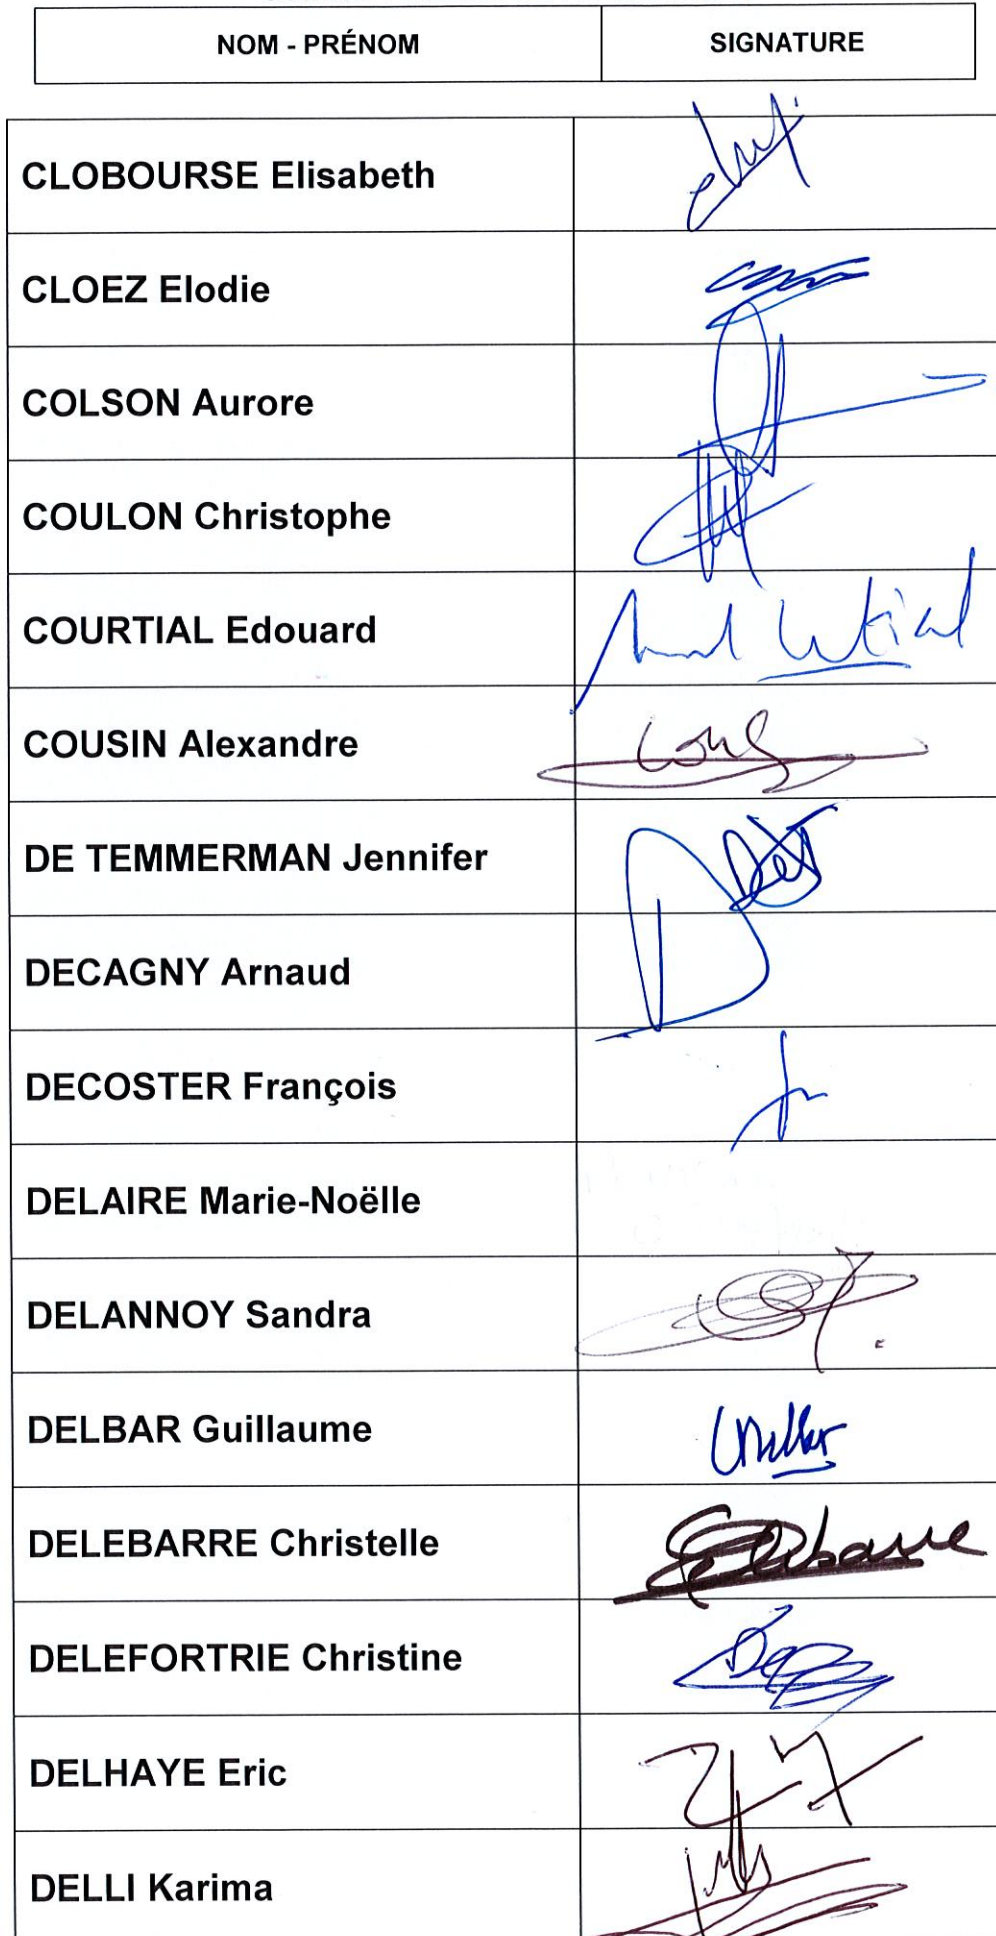 NOM - PRÉNOM SIGNATURE
CLOBOURSE Elisabeth
CLOEZ Elodie
COLSON Aurore
COULON Christophe
COURTIAL Edouard
COUSIN Alexandre
DE TEMMERMAN Jennifer
DECAGNY Arnaud
DECOSTER François
DELAIRE Marie-Noëlle
DELANNOY Sandra
DELBAR Guillaume
DELEBARRE Christelle
DELEFORTRIE Christine
DELHAYE Eric
DELLI Karima